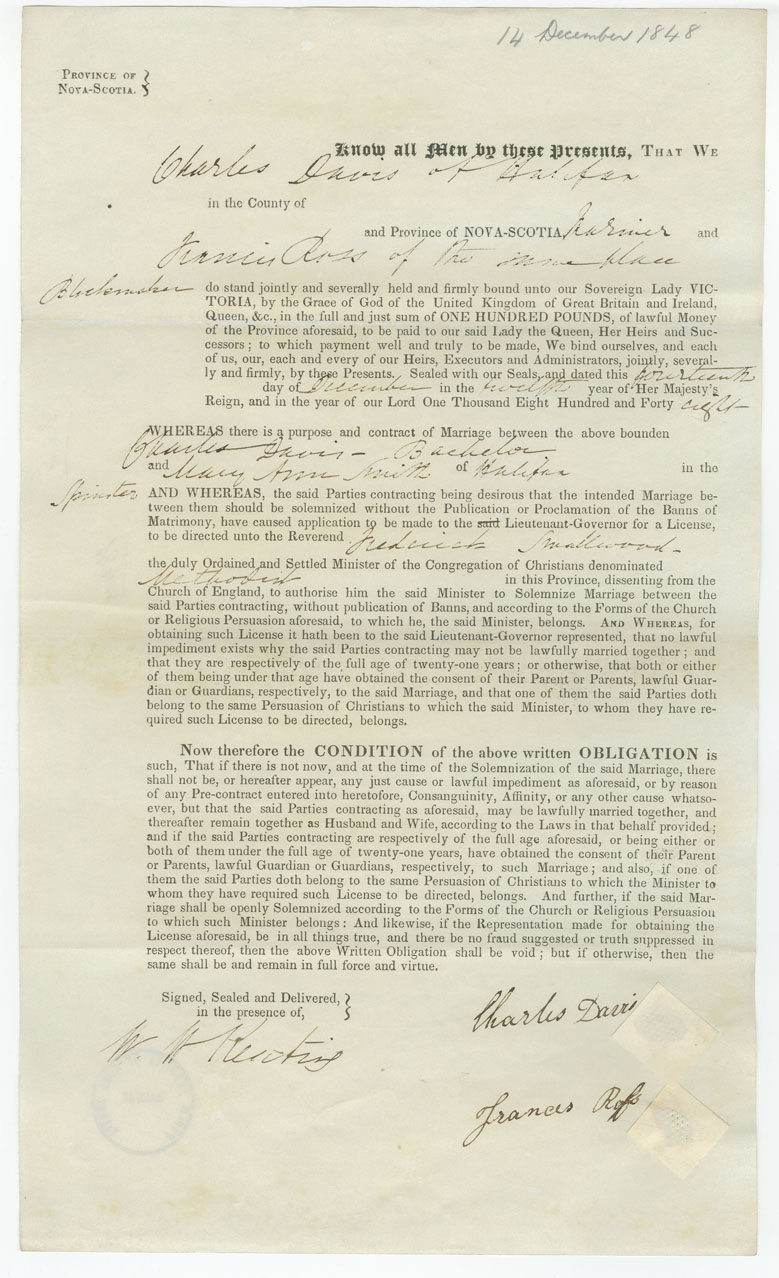 14 December 1848
PROVINCE OF
NOVA-SCOTIA.
Know all Men by these Presents, THAT WE
Charles Davis of Halifax
in the County of
and Province of NOVA-SCOTIA, Mariner and
Francis Ross of the same place
Blockmaker do stand jointly and severally held and firmly bound unto our Sovereign Lady VIC-
TORIA, by the Grace of God of the United Kingdom of Great Britain and Ireland,
Queen, &c., in the full and just sum of ONE HUNDRED POUNDS, of lawful Money
of the Province aforesaid, to be paid to our said Lady the Queen, Her Heirs and Suc-
cessors; to which payment well and truly to be made, We bind ourselves, and each
of us, our, each and every of our Heirs, Executors and Administrators, jointly, several-
ly and firmly, by these Presents. Sealed with our Seals, and dated this fourteenth
day of December in the twelfth year of Her Majesty's
Reign, and in the year of our Lord One Thousand Eight Hundred and Forty eight
WHEREAS there is a purpose and contract of Marriage between the above bounden
Charles Davis - Bachelor
and Mary Ann Smith of Halifax in the
Spinster AND WHEREAS, the said Parties contracting being desirous that the intended Marriage be-
tween them should be solemnized without the Publication or Proclamation of the Banns of
Matrimony, have caused application to be made to the said Lieutenant-Governor for a License,
to be directed unto the Reverend Frederick Smallwood
the duly Ordained and Settled Minister of the Congregation of Christians denominated
Methodist in this Province, dissenting from the
Church of England, to authorise him the said Minister to Solemnize Marriage between the
said Parties contracting, without publication of Banns, and according to the Forms of the Church
or Religious Persuasion aforesaid, to which he, the said Minister, belongs. AND WHEREAS, for
obtaining such License it hath been to the said Lieutenant-Governor represented, that no lawful
impediment exists why the said Parties contracting may not be lawfully married together; and
that they are respectively of the full age of twenty-one years; or otherwise, that both or either
of them being under that age have obtained the consent of their Parent or Parents, lawful Guar-
dian or Guardians, respectively, to the said Marriage, and that one of them the said Parties doth
belong to the same Persuasion of Christians to which the said Minister, to whom they have re-
quired such License to be directed, belongs.
Now therefore the CONDITION of the above written OBLIGATION is
such, That if there is not now, and at the time of the Solemnization of the said Marriage, there
shall not be, or hereafter appear, any just cause or lawful impediment as aforesaid, or by reason
of any Pre-contract entered into heretofore, Consanguinity, Affinity, or any other cause whatso-
ever, but that the said Parties contracting as aforesaid, may be lawfully married together, and
thereafter remain together as Husband and Wife, according to the Laws in that behalf provided;
and if the said Parties contracting are respectively of the full age aforesaid, or being either or
both of them under the full age of twenty-one years, have obtained the consent of their Parent
or Parents, lawful Guardian or Guardians, respectively, to such Marriage; and also, if one of
them the said Parties doth belong to the same Persuasion of Christians to which the Minister to
whom they have required such License to be directed, belongs. And further, if the said Mar-
riage shall be openly Solemnized according to the Forms of the Church or Religious Persuasion
to which such Minister belongs: And likewise, if the Representation made for obtaining the
License aforesaid, be in all things true, and there be no fraud suggested or truth suppressed in
respect thereof, then the above Written Obligation shall be void; but if otherwise, then the
same shall be and remain in full force and virtue.
Signed, Sealed and Delivered,
in the presence of,
Charles Davis
W. H. Keating
Francis Ross